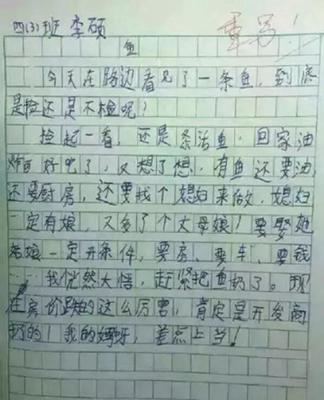 四(3)班 李硕
重写!
鱼
今天在路边看见了一条鱼,到底
是捡还是不捡呢?
捡起一看,还是条活鱼,回家油
炸可好吃了,又想了想,有鱼还要油,
还要厨房,还要找个媳妇来做,媳妇
一定有娘,又多了个丈母娘!要娶她
老娘一定开条件,要房、要车、要钱
……我恍然大悟,赶紧把鱼扔了。现
在房价跌的这么厉害,肯定是开发商
扔的!我的妈呀,差点上当!